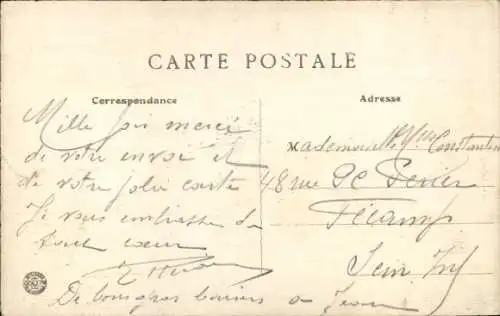 CARTE POSTALE
Correspondance
Adresse
Mille fois merci
de votre envoi et
de votre jolie carte
Je vous embrasse de
tout cœur
De bons gros baisers a Jean
Mademoiselle Constantin
48 rue
Fécamp
Sein Inf